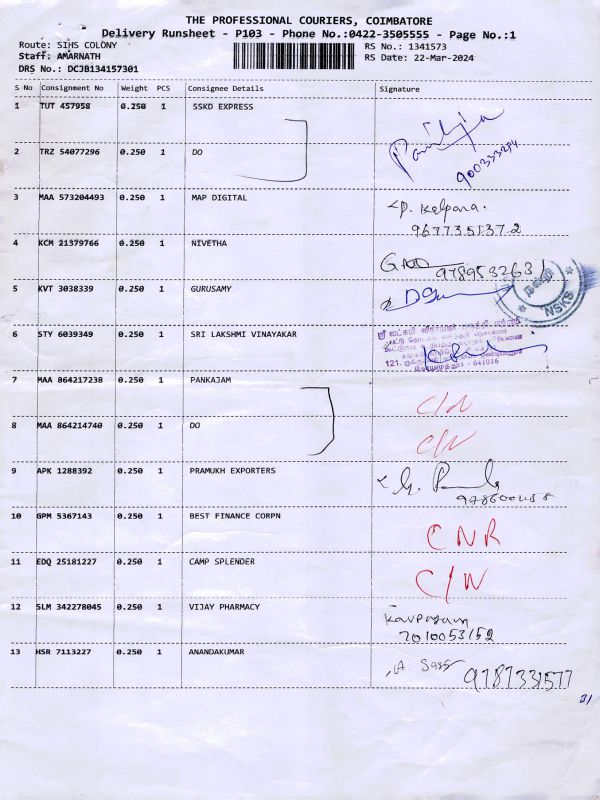 THE PROFESSIONAL COURIERS, COIMBATORE
Delivery Runsheet - P103 - Phone No.:0422-3505555 - Page No.:1
Route: SIHS COLONY
RS No.: 1341573
Staff: AMARNATH
RS Date: 22-Mar-2024
DRS No.: DCJB134157301
S No Consignment No Weight PCS Consignee Details Signature
1 TUT 457958 0.250 1 SSKD EXPRESS
2 TRZ 54077296 0.250 1 DO
3 MAA 573204493 0.250 1 MAP DIGITAL P. Kalpana.
9677351372
4 KCM 21379766 0.250 1 NIVETHA
5 KVT 3038339 0.250 1 GURUSAMY
NSKS
6 STY 6039349 0.250 1 SRI LAKSHMI VINAYAKAR
641016
7 MAA 864217238 0.250 1 PANKAJAM C/N
8 MAA 864214740 0.250 1 DO C/N
9 APK 1288392 0.250 1 PRAMUKH EXPORTERS
10 GPM 5367143 0.250 1 BEST FINANCE CORPN CNR
11 EDQ 25181227 0.250 1 CAMP SPLENDER C/N
12 SLM 342278045 0.250 1 VIJAY PHARMACY
7010053152
13 HSR 7113227 0.250 1 ANANDAKUMAR 9787331577
31